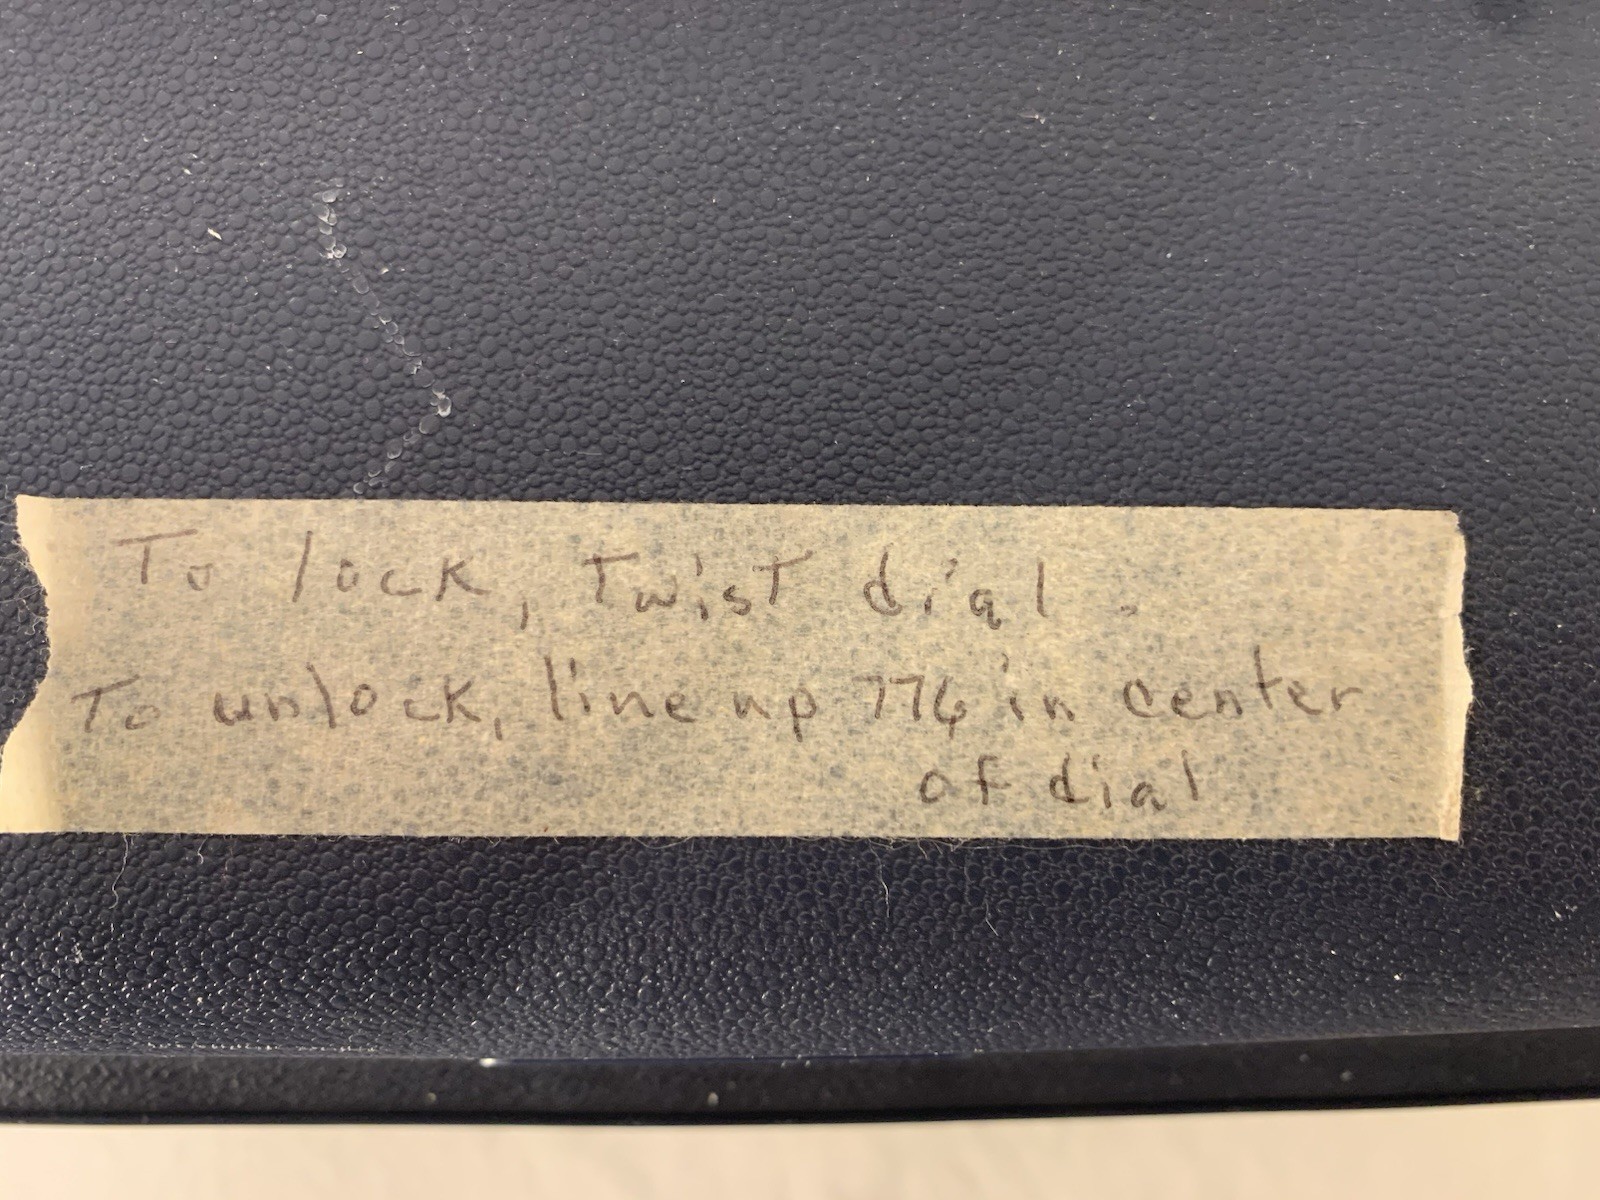 To lock, Twist dial.
To unlock, line up 776 in center
of dial